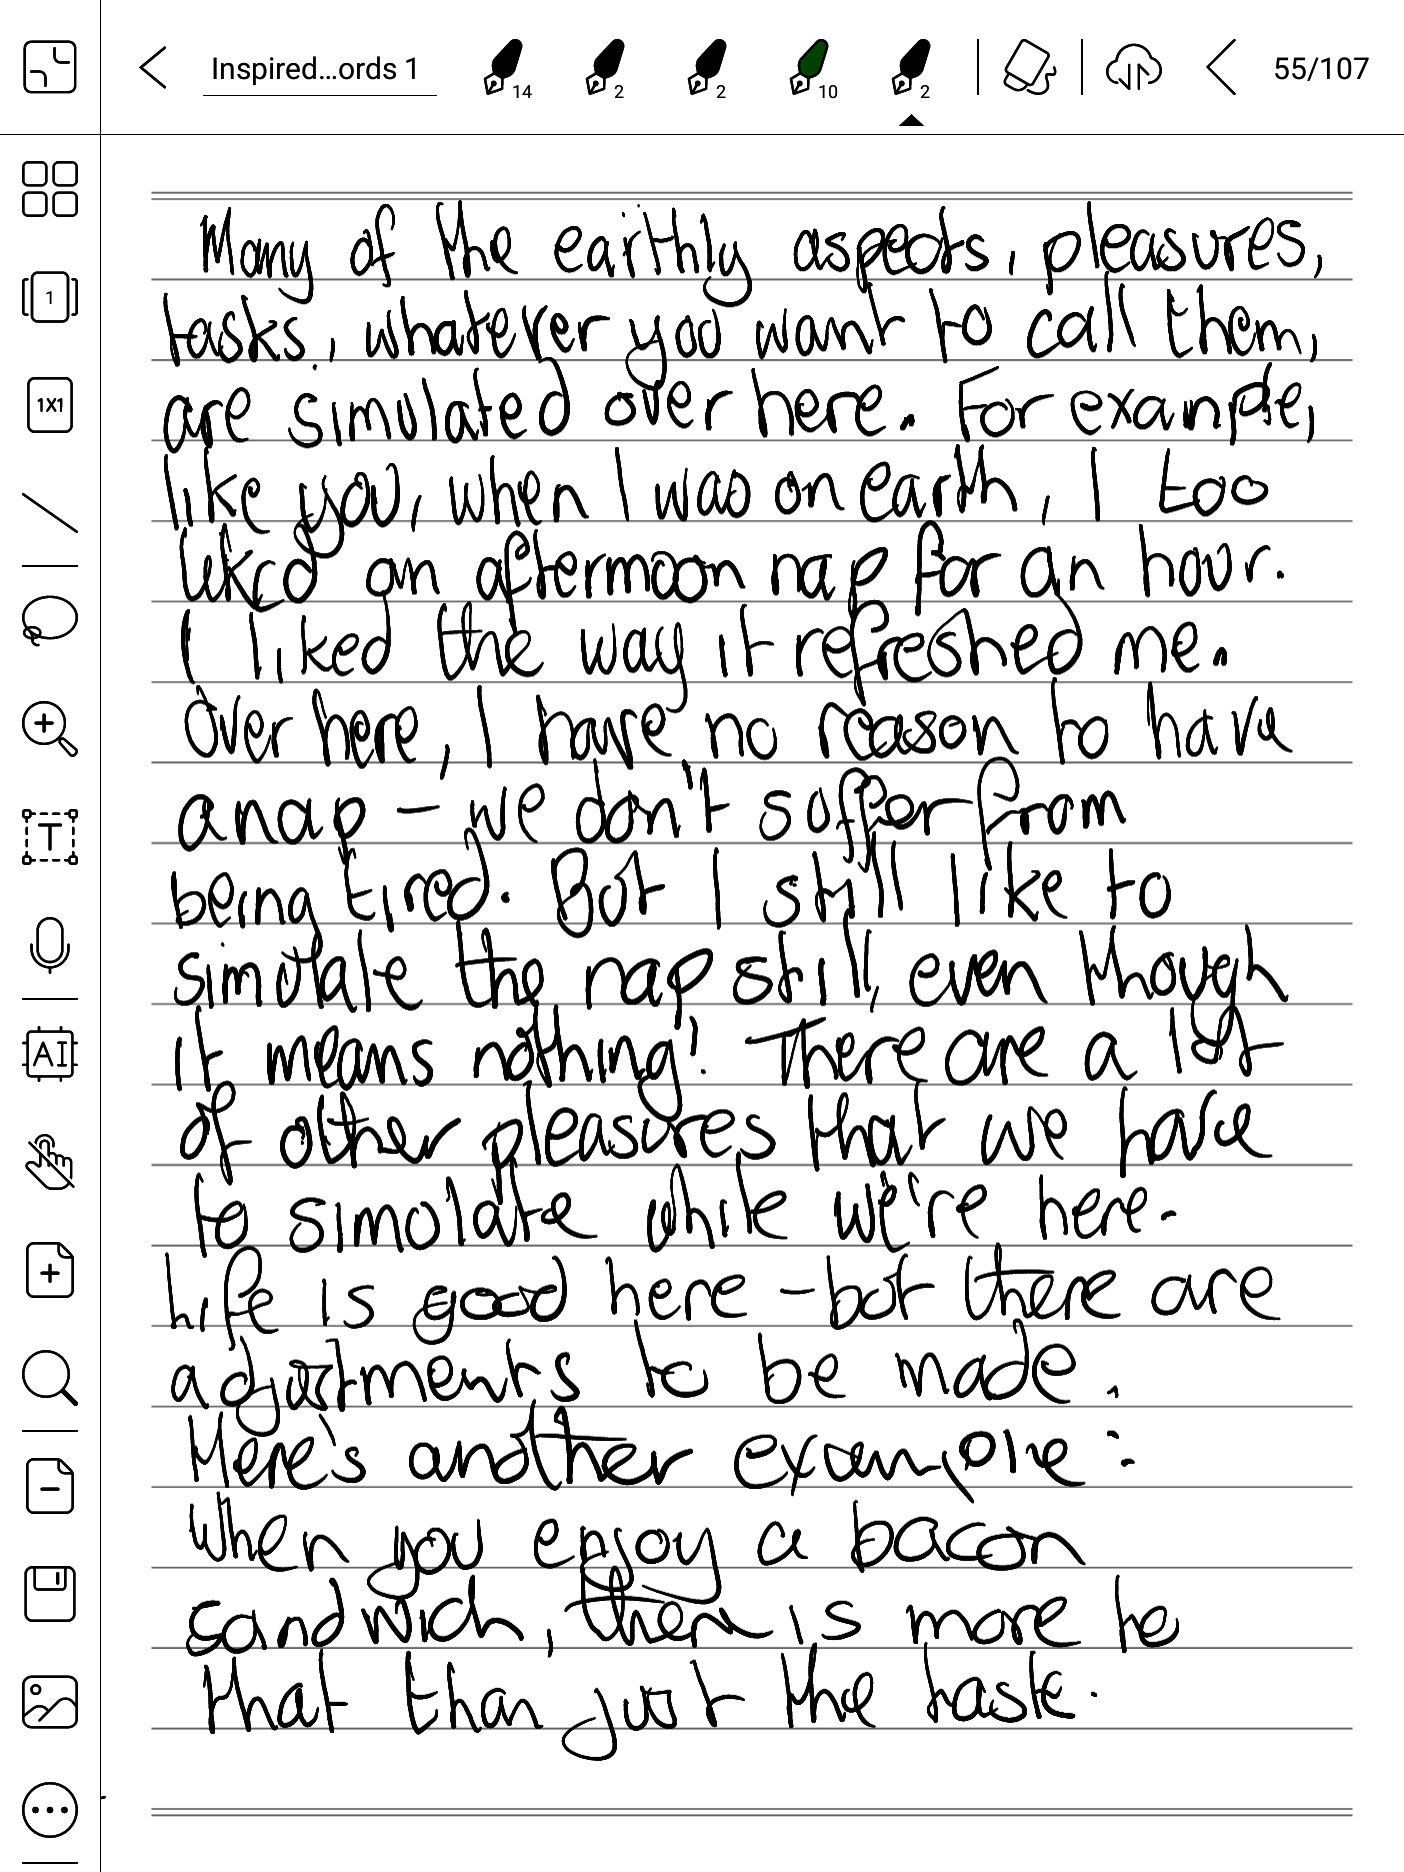 Inspired...ords 1
14
2
2
10
2
55/107
1
1X1
T
AI
Many of the earthly aspects, pleasures,
tasks, whatever you want to call them,
are simulated over here. For example,
like you, when I was on earth, I too
liked an afternoon nap for an hour.
I liked the way it refreshed me.
Over here, I have no reason to have
a nap - we don't suffer from
being tired. But I still like to
simulate the nap still, even though
it means nothing! There are a lot
of other pleasures that we have
to simulate while we're here.
Life is good here - but there are
adjustments to be made.
Here's another example:
When you enjoy a bacon
sandwich, there is more to
that than just the taste.